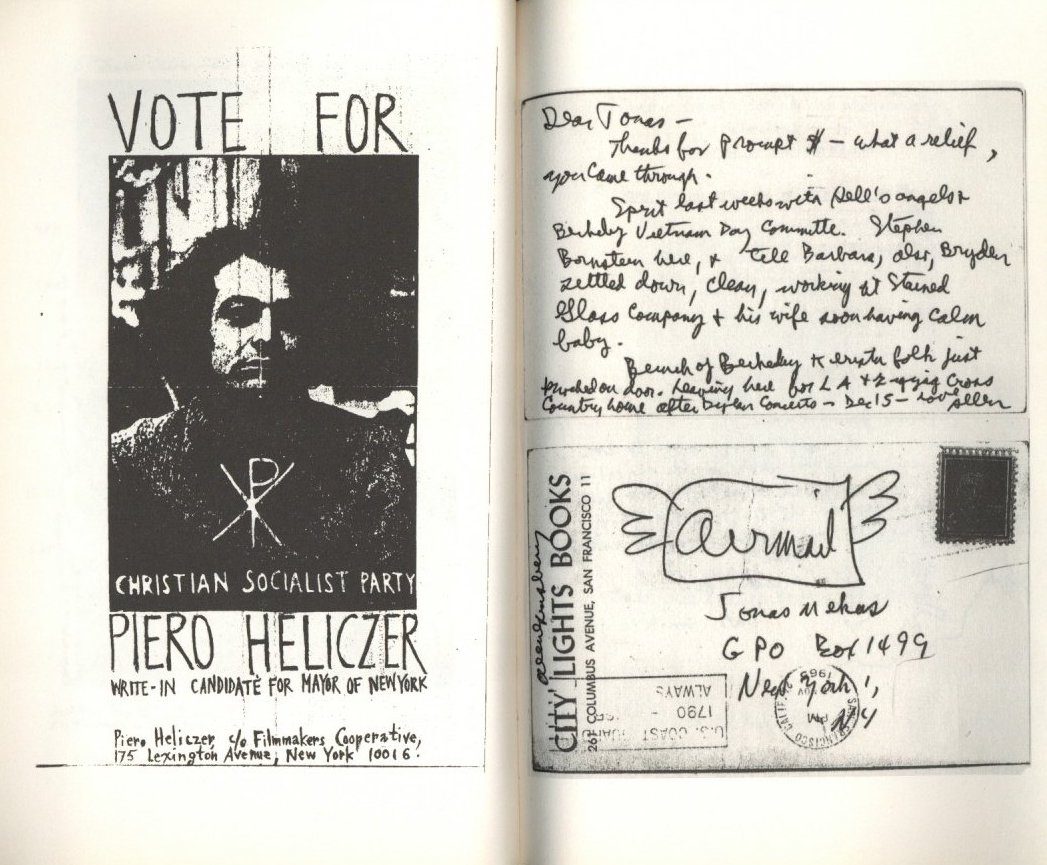 VOTE FOR
CHRISTIAN SOCIALIST PARTY
PIERO HELICZER
WRITE-IN CANDIDATE FOR MAYOR OF NEW YORK
Piero Heliczer, c/o Filmmakers Cooperative,
175 Lexington Avenue, New York 10016.
Dear Jonas —
Thanks for prompt $ — what a relief,
you came through.
Spent last weeks with Hell's angels +
Berkeley Vietnam Day Committe. Stephen
Bornstein here, + tell Barbara, also, Bryden
settled down, clean, working at Stained
Glass Company + his wife soon having calm
baby.
Bunch of Berkeley folk just
knocked on door. Leaving here for LA + zigzag Cross
Country home after Dylan Concerts — Dec 15 — love Allen
Allen Ginsberg
CITY LIGHTS BOOKS
261 COLUMBUS AVENUE, SAN FRANCISCO 11
Airmail
Jonas Mekas
GPO Box 1499
New York 1,
NY
U.S. COAST
1790 -
ALWAYS
SAN FRANCISCO CALIF.
PM
1965